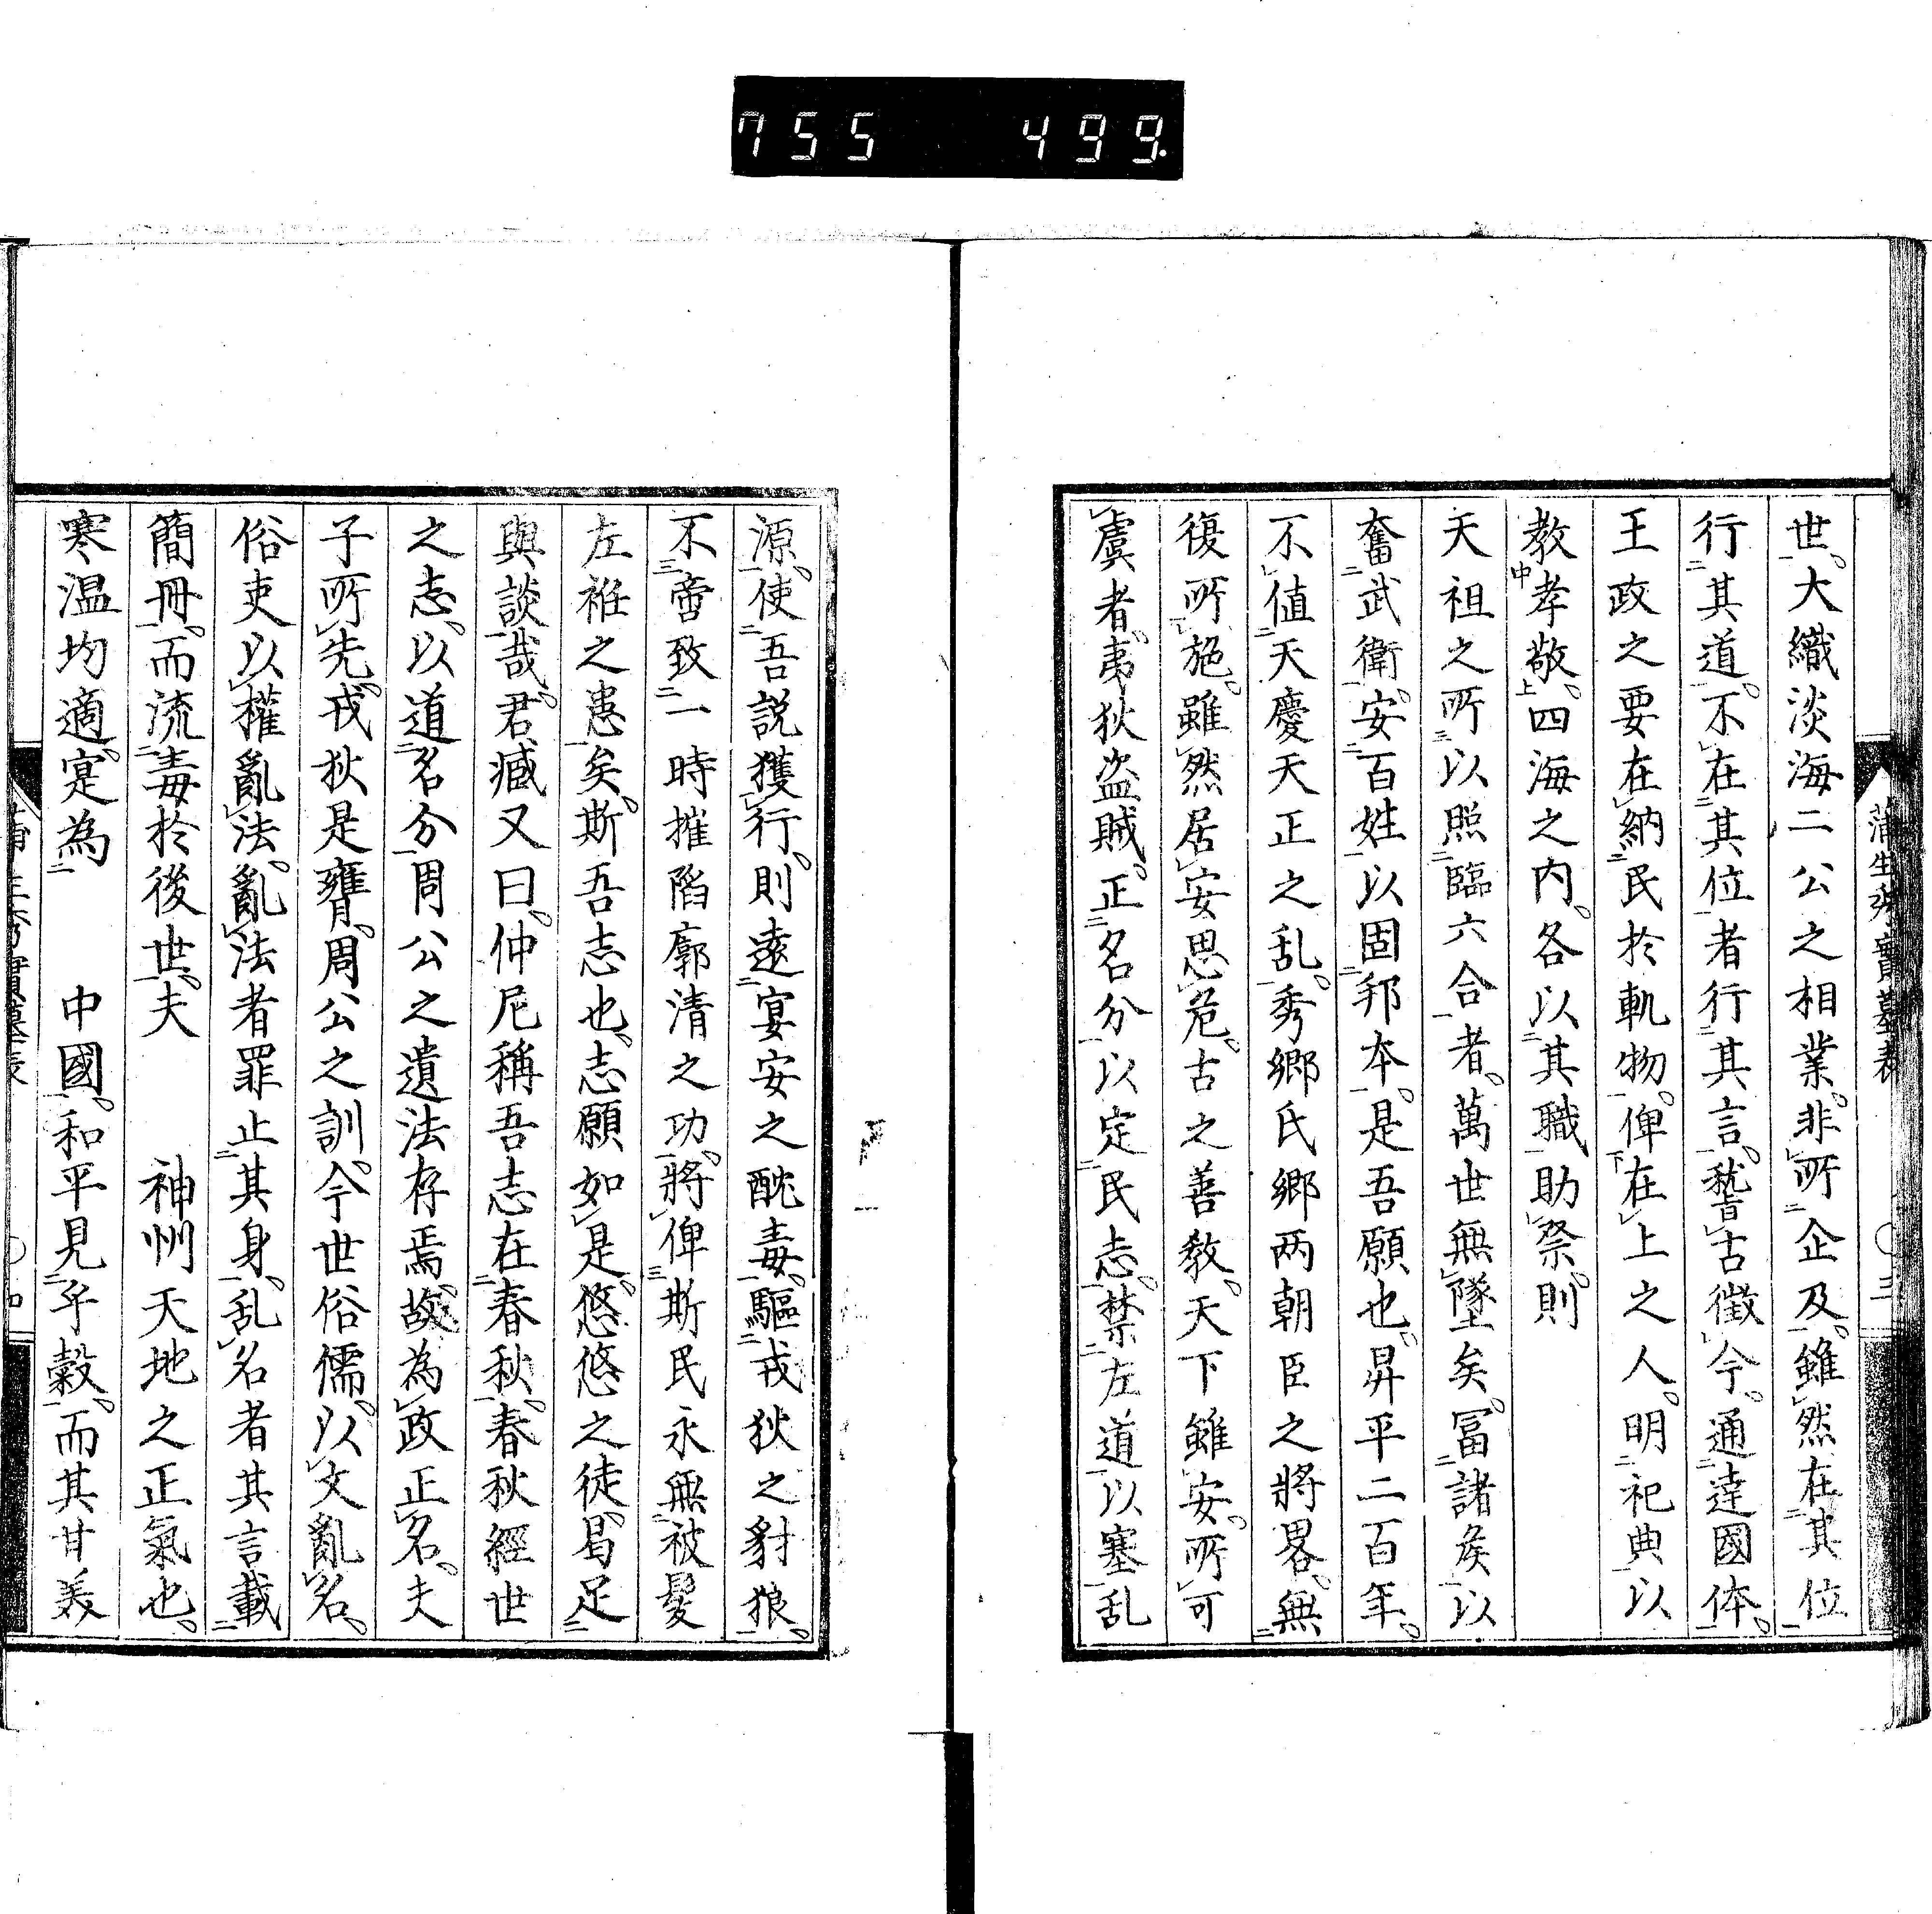 755 499.
蒲生秀實墓表 三
世大織淡海二公之相業非所企及雖然在其位
行其道不在其位者行其言稽古徵今通達國体
王政之要在納民於軌物俾在上之人明祀典以
教孝敬四海之内各以其職助祭則
天祖之所以照臨六合者萬世無墜矣冨諸矦以
奮武衛安百姓以固邦本是吾願也昇平二百年
不值天慶天正之乱秀鄉氏鄉两朝臣之將畧無
復所施雖然居安思危古之善教天下雖安所可
虞者夷狄盗賊正名分以定民志禁左道以塞乱
源使吾說獲行則遠宴安之酖毒驅戎狄之豺狼
不啻致一時摧陷廓清之功將俾斯民永無被髮
左袵之患矣斯吾志也志願如是悠悠之徒曷足
與談哉君臧又曰仲尼稱吾志在春秋春秋經世
之志以道名分周公之遺法存焉故為政正名夫
子所先戎狄是膺周公之訓今世俗儒以文亂名
俗吏以權亂法亂法者罪止其身乱名者其言載
簡冊而流毒於後世夫 神州天地之正氣也
寒温均適寔為 中國和平見乎穀而其甘美
蒲生秀實墓表 四